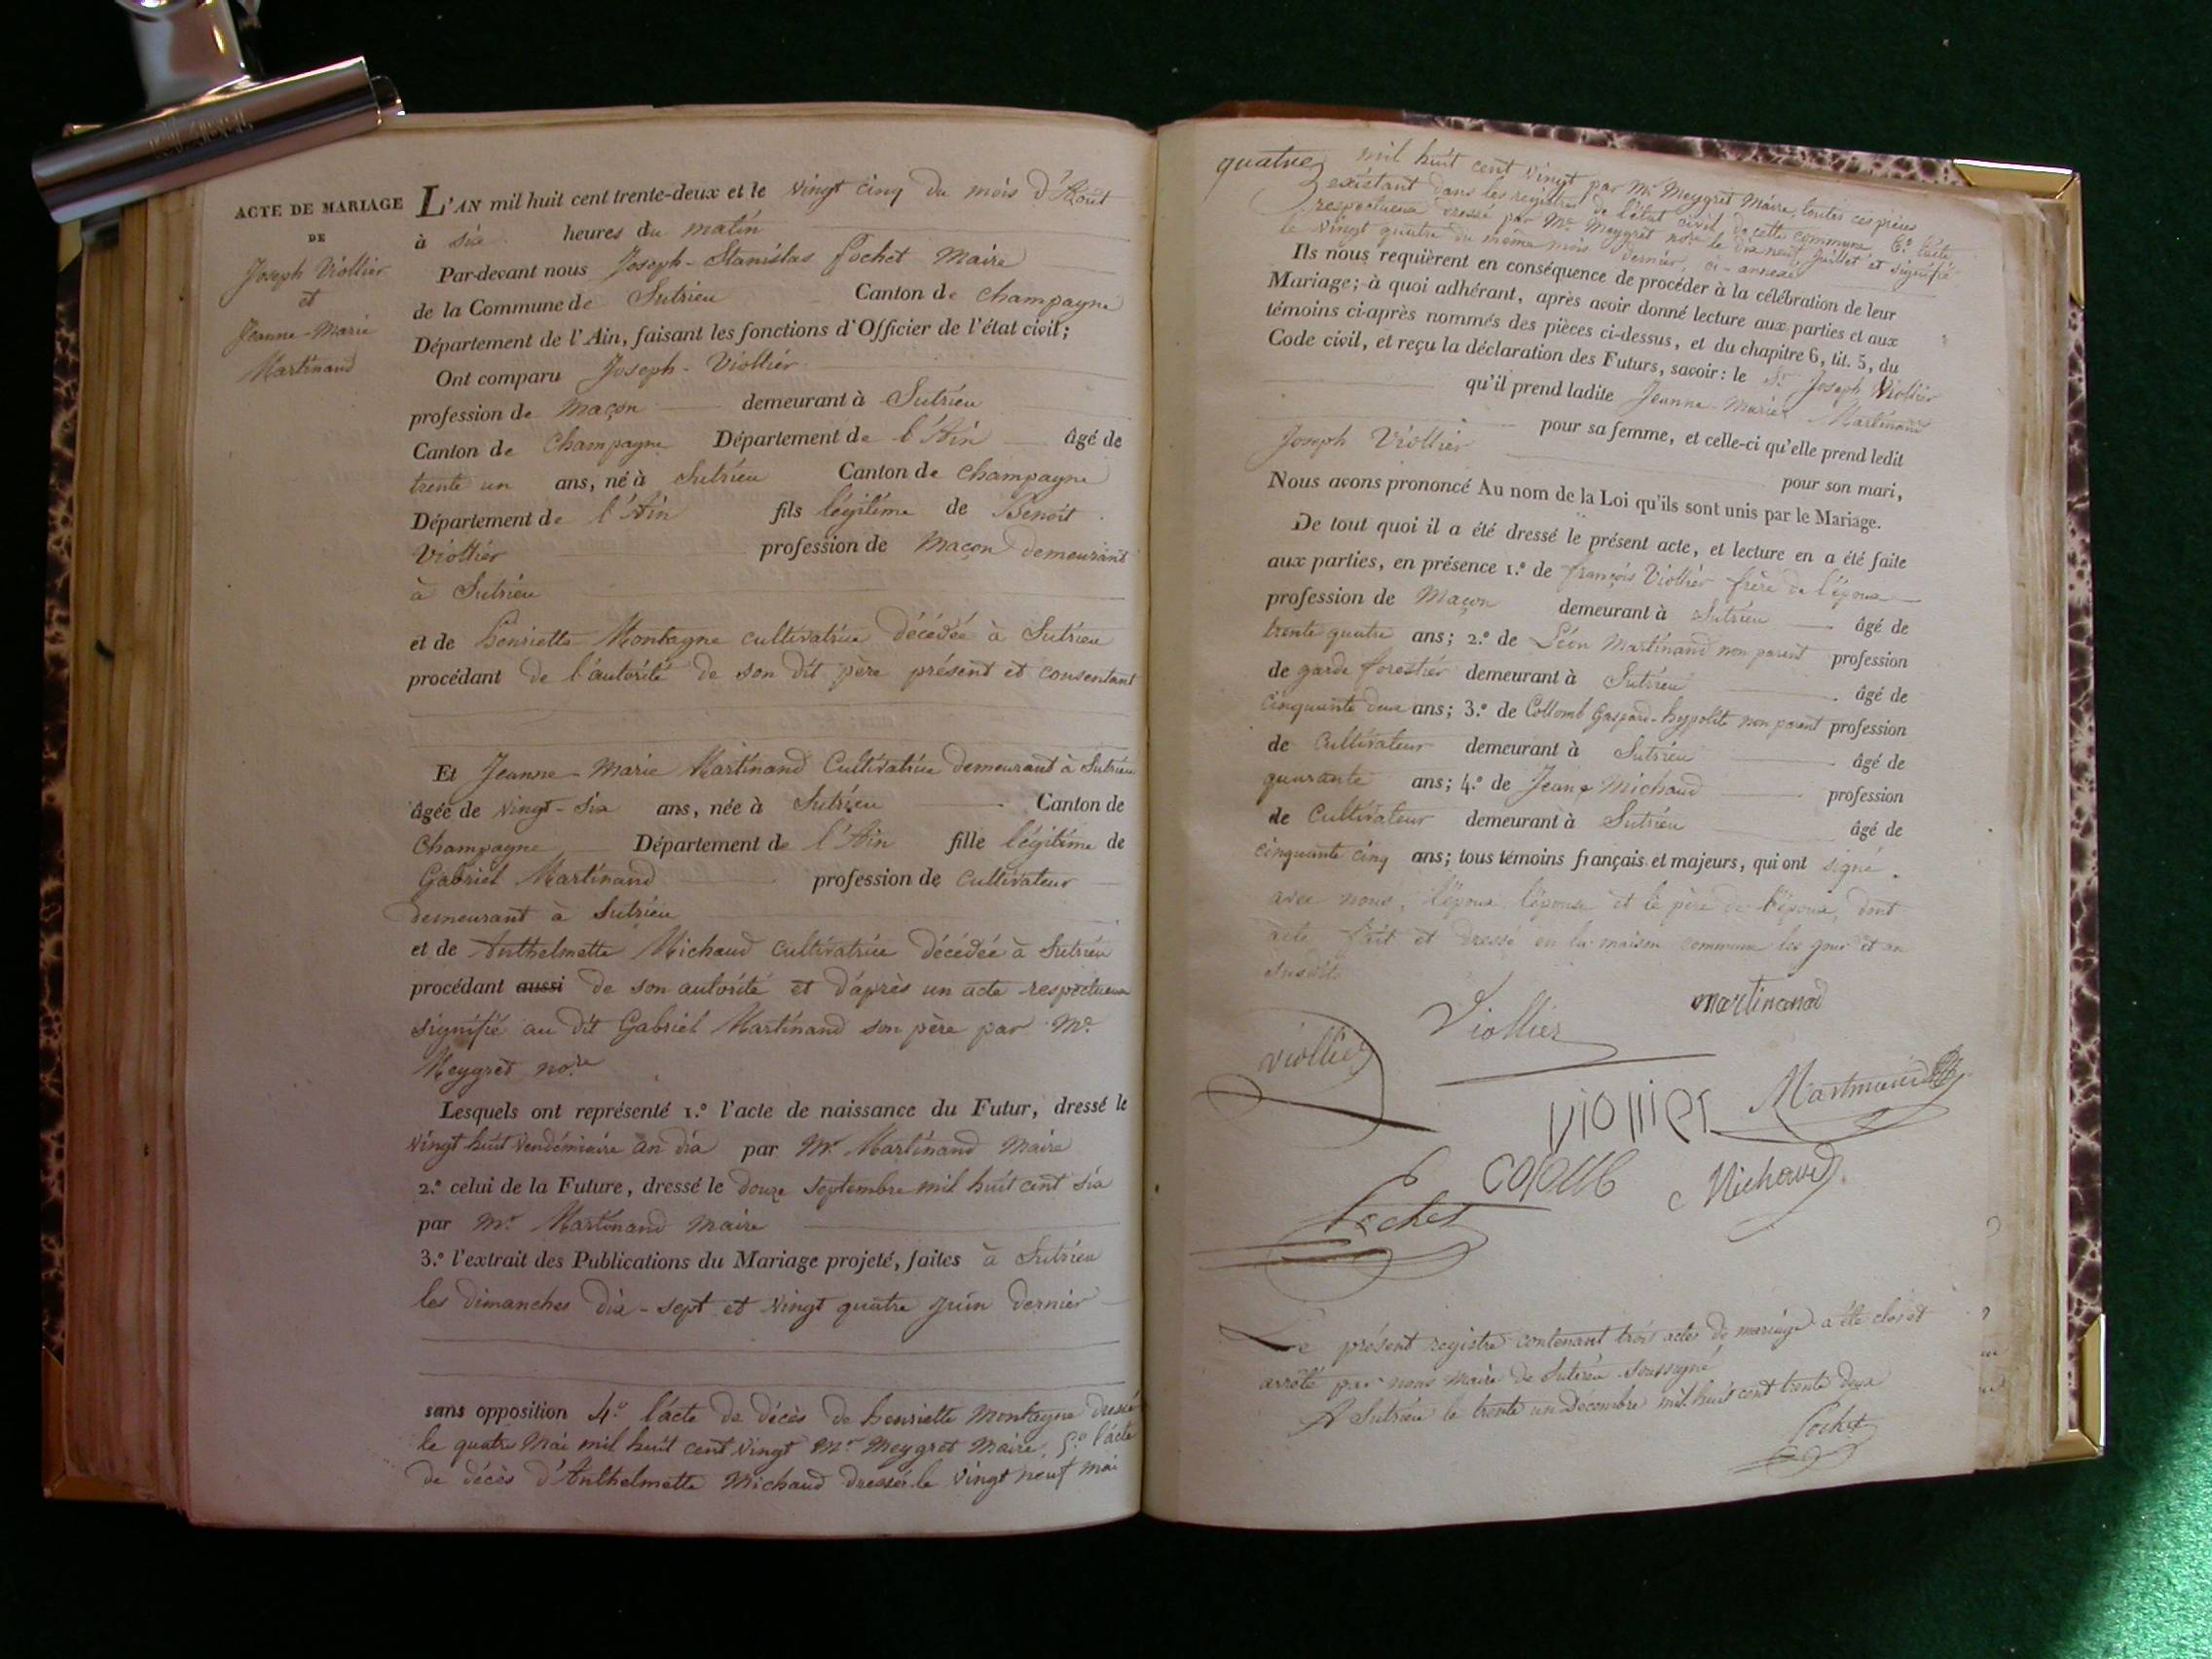 ACTE DE MARIAGE
DE
Joseph Viollier
et
Jeanne-Marie
Martinand
L'AN mil huit cent trente-deux et le vingt cinq du mois d'Août
à six heures du matin
Par-devant nous Joseph-Stanislas Pochet Maire
de la Commune de Sutrieu Canton de Champagne
Département de l'Ain, faisant les fonctions d'Officier de l'état civil;
Ont comparu Joseph-Viollier
profession de Maçon demeurant à Sutrieu
Canton de Champagne Département de l'Ain âgé de
trente un ans, né à Sutrieu Canton de Champagne
Département de l'Ain fils légitime de Benoit
Viollier profession de Maçon demeurant
à Sutrieu
et de henriette Montagne cultivatrice décédée à Sutrieu
procédant de l'autorité de son dit père présent et consentant
Et Jeanne-Marie Martinand Cultivatrice demeurant à Sutrieu
âgée de vingt-six ans, née à Sutrieu Canton de
Champagne Département de l'Ain fille légitime de
Gabriel Martinand profession de Cultivateur
demeurant à Sutrieu
et de Anthelmette Michaud cultivatrice décédée à Sutrieu
procédant aussi de son autorité et d'après un acte respectueux
signifié au dit Gabriel Martinand son père par Me
Meygret nore
Lesquels ont représenté 1.º l'acte de naissance du Futur, dressé le
vingt huit vendémiaire an dix par Mr Martinand Maire
2.º celui de la Future, dressé le douze septembre mil huit cent six
par Mr Martinand Maire
3.º l'extrait des Publications du Mariage projeté, faites à Sutrieu
les dimanches dix-sept et vingt quatre Juin dernier
sans opposition 4.º l'acte de décès de henriette Montagne dressé
le quatre Mai mil huit cent vingt Mr Meygret Maire. 5.º l'acte
de décès d'Anthelmette Michaud dressé le vingt neuf mai
quatre mil huit cent vingt par Mr Meygret Maire, toutes ces pièces
existant dans les registres de l'état civil de cette commune 6.º l'acte
respectueux dressé par Me Meygret nore le dix neuf Juillet et signifié
le vingt quatre du même mois dernier, ci-annexé
Ils nous requièrent en conséquence de procéder à la célébration de leur
Mariage; à quoi adhérant, après avoir donné lecture aux parties et aux
témoins ci-après nommés des pièces ci-dessus, et du chapitre 6, tit. 5, du
Code civil, et reçu la déclaration des Futurs, savoir: le Sr Joseph Viollier
qu'il prend ladite Jeanne-Marie Martinand
pour sa femme, et celle-ci qu'elle prend ledit
Joseph Viollier pour son mari,
Nous avons prononcé Au nom de la Loi qu'ils sont unis par le Mariage.
De tout quoi il a été dressé le présent acte, et lecture en a été faite
aux parties, en présence 1.º de françois Viollier frère de l'époux
profession de Maçon demeurant à Sutrieu âgé de
trente quatre ans; 2.º de Léon Martinand non parent profession
de garde forestier demeurant à Sutrieu âgé de
cinquante deux ans; 3.º de Collomb Gaspard-hypolite non parent profession
de Cultivateur demeurant à Sutrieu âgé de
quarante ans; 4.º de Jean Michaud profession
de Cultivateur demeurant à Sutrieu âgé de
cinquante cinq ans; tous témoins français et majeurs, qui ont signé
avec nous, l'époux l'épouse et le père de l'époux, dont
acte fait et dressé en la maison commune les jour et an
susdits
martinand
Viollier
viollier
viollier Martinand
Collomb Michaud
Pochet
Le présent registre contenant trois actes de mariage a été clos et
arrêté par nous Maire de Sutrieu soussigné
A Sutrieu le trente un Décembre mil huit cent trente deux
Pochet